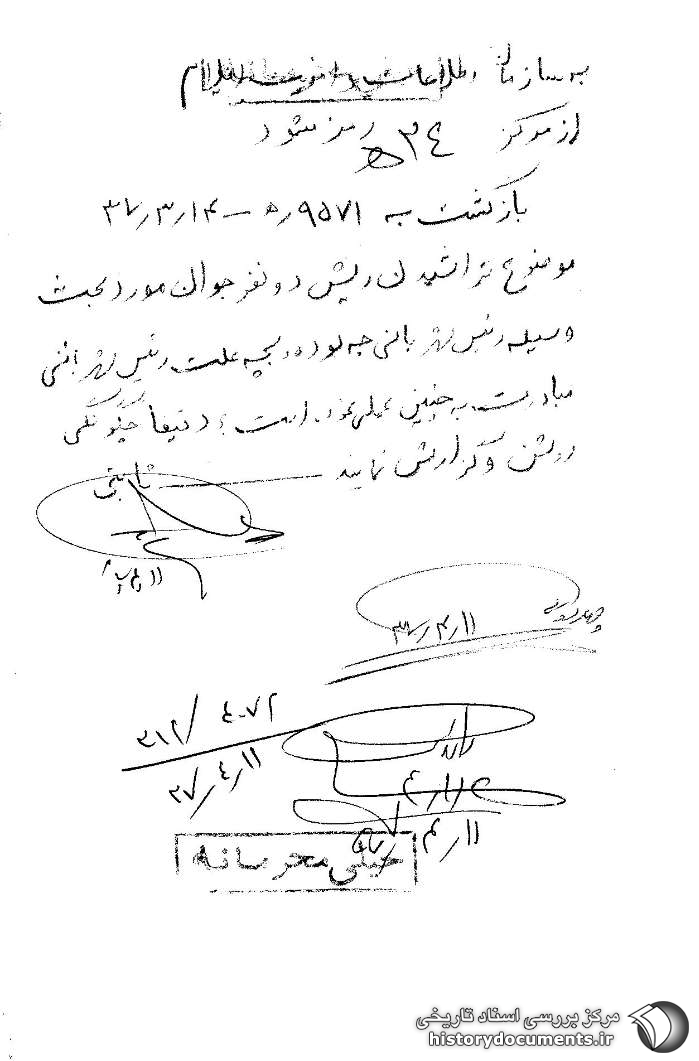 به سازمان اطلاعات و امنیت ایلام
از مرکز ۳۴۵ رمز شود
بازگشت به ۹۵۷۱/ه - ۳۷/۳/۱۴
موضوع تراشیدن ریش دو نفر جوان مورد بحث
وسیله رئیس شهربانی چه بوده و بچه علت رئیس شهربانی
مبادرت به چنین عملی نموده است ؛ دقیقا چگونگی
روشن و گزارش نمایند ثابتی
۳۷/۴/۱۱
۳۱۲/ ۴۰۷۲
۳۷/۴/۱۱
۴/۱۱
خیلی محرمانه
مرکز بررسی اسناد تاریخی
historydocuments.ir